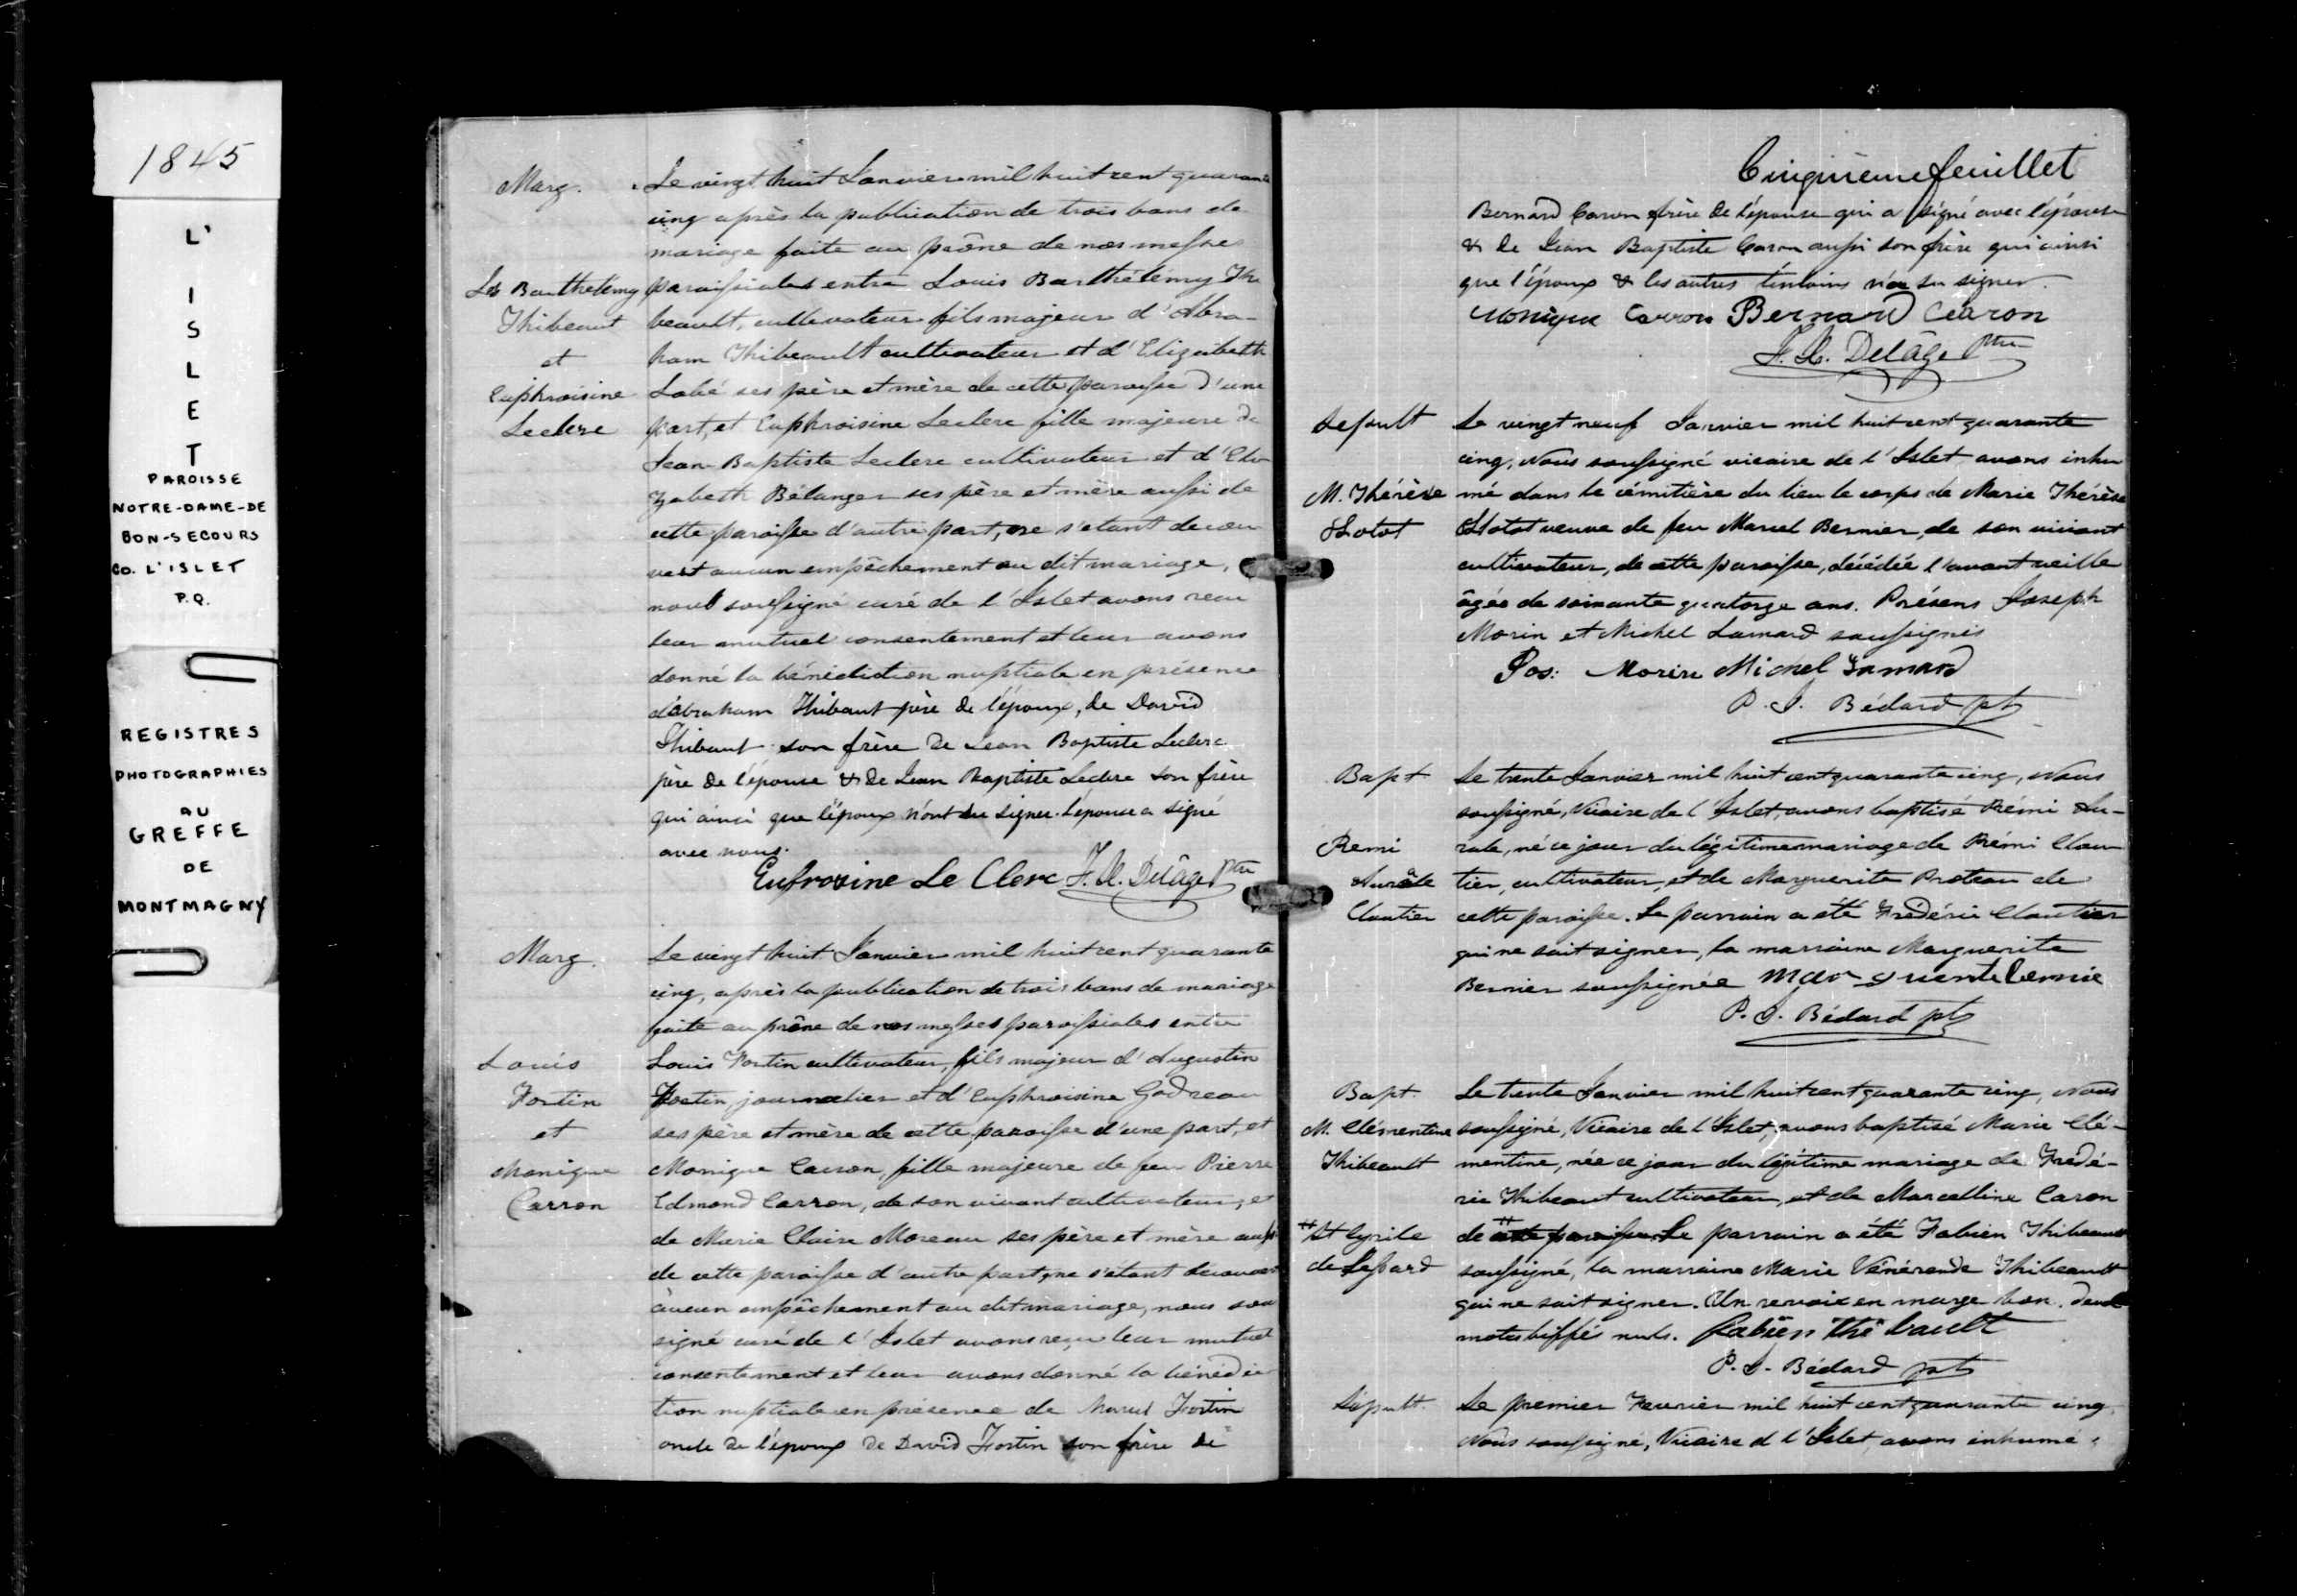 1845
L'
I
S
L
E
T
PAROISSE
NOTRE-DAME-DE
BON-SECOURS
CO. L'ISLET
P.Q.
REGISTRES
PHOTOGRAPHIES
AU
GREFFE
DE
MONTMAGNY
Marg.
Ls Barthelemy
Thibeaut
et
Euphroisine
Leclerc
Le vingt huit Janvier mil huit cent quarante
cinq après la publication de trois bans de
mariage faite au prône de nos messes
paroissiales entre Louis Barthélémy Thi
beault, cultivateur fils majeur d'Abra-
ham Thibeault cultivateur et d'Elizabeth
Labé ses père et mère de cette paroisse d'une
part, et Euphroisine Leclerc fille majeure de
Jean-Baptiste Leclerc cultivateur et d'Eli
zabeth Bélanger ses père et mère aussi de
cette paroisse d'autre part, ne s'etant decou
vert aucun empêchement au dit mariage,
nous soussigné curé de l'Islet avons recu
leur mutuel consentement et leur avons
donné la bénédiction nuptiale en présence
d'Abraham Thibaut père de l'époux, de David
Thibaut son frère de Jean Baptiste Leclerc
père de l'épouse & de Jean Baptiste Leclerc son frère
qui ainsi que l'époux n'ont su signer. l'épouse a signé
avec nous.
Eufrosine Le Clerc F. X. Delâge Ptre
Marg.
Louis
Fortin
et
Monique
Carron
Le vingt huit Janvier mil huit cent quarante
cinq, après la publication de trois bans de mariage
faite au prône de nos messes paroissiales entre
Louis Fortin cultivateur, fils majeur d'Augustin
Fortin journalier et d'Euphroisine Godreau
ses père et mère de cette paroisse d'une part, et
Monique Carron, fille majeure de feu Pierre
Edmond Carron, de son vivant cultivateur, et
de Marie Claire Moreau ses père et mère aussi
de cette paroisse d'autre part, ne s'etant decouvert
aucun empêchement au dit mariage, nous sous
signé curé de l'Islet avons reçu leur mutuel
consentement et leur avons donné la bénédic
tion nuptiale en présence de Marcel Fortin
oncle de l'époux de David Fortin son frère de
Cinquième feuillet
Bernard Caron frère de l'épouse qui a signé avec l'épouse
& de Jean Baptiste Caron aussi son frère qui ainsi
que l'époux & les autres témoins n'ont su signer.
Monique Carron Bernard Caron
F. X. Delâge Ptre
Sepult
M. Thérèse
Hotot
Le vingt neuf Janvier mil huit cent quarante
cinq, Nous soussigné vicaire de l'Islet avons inhu
mé dans le cémitière du lieu le corps de Marie Thérèse
Hotot veuve de feu Marcel Bernier, de son vivant
cultivateur, de cette paroisse, décédée l'avant veille
âgée de soixante quatorze ans. Présens Joseph
Morin et Michel Lamard soussignés
Jos: Morin Michel Lamard
P. J. Bédard pt
Bapt
Remi
Aurèle
Cloutier
Le trente Janvier mil huit cent quarante cinq, Nous
soussigné, Vicaire de l'Islet, avons baptisé Rémi Au-
rèle, né ce jour du légitime mariage de Rémi Clou
tier, cultivateur, et de Marguerite Proteau de
cette paroisse. Le parrain a été Frédéric Cloutier
qui ne sait signer, la marraine Marguerite
Bernier soussignée
P. J. Bédard pt
Bapt.
M. Clémentine
Thibeault
# St Cyrile
de Lessard
Le trente Janvier mil huit cent quarante cinq, Nous
soussigné, Vicaire de l'Islet, avons baptisé Marie Clé-
mentine, née ce jour du légitime mariage de Frédé-
ric Thibeaut cultivateur, et de Marcelline Caron
de # cette paroisse. Le parrain a été Fabien Thibeault
soussigné, la marraine Marie Vénérende Thibeault
qui ne sait signer. Un renvoi en marge bon. deux
mots biffés nuls. Fabien Thibault
P. J. Bédard pt
Sépult.
Le premier Fevrier mil huit cent quarante cinq,
Nous soussigné, Vicaire d l'Islet, avons inhumé